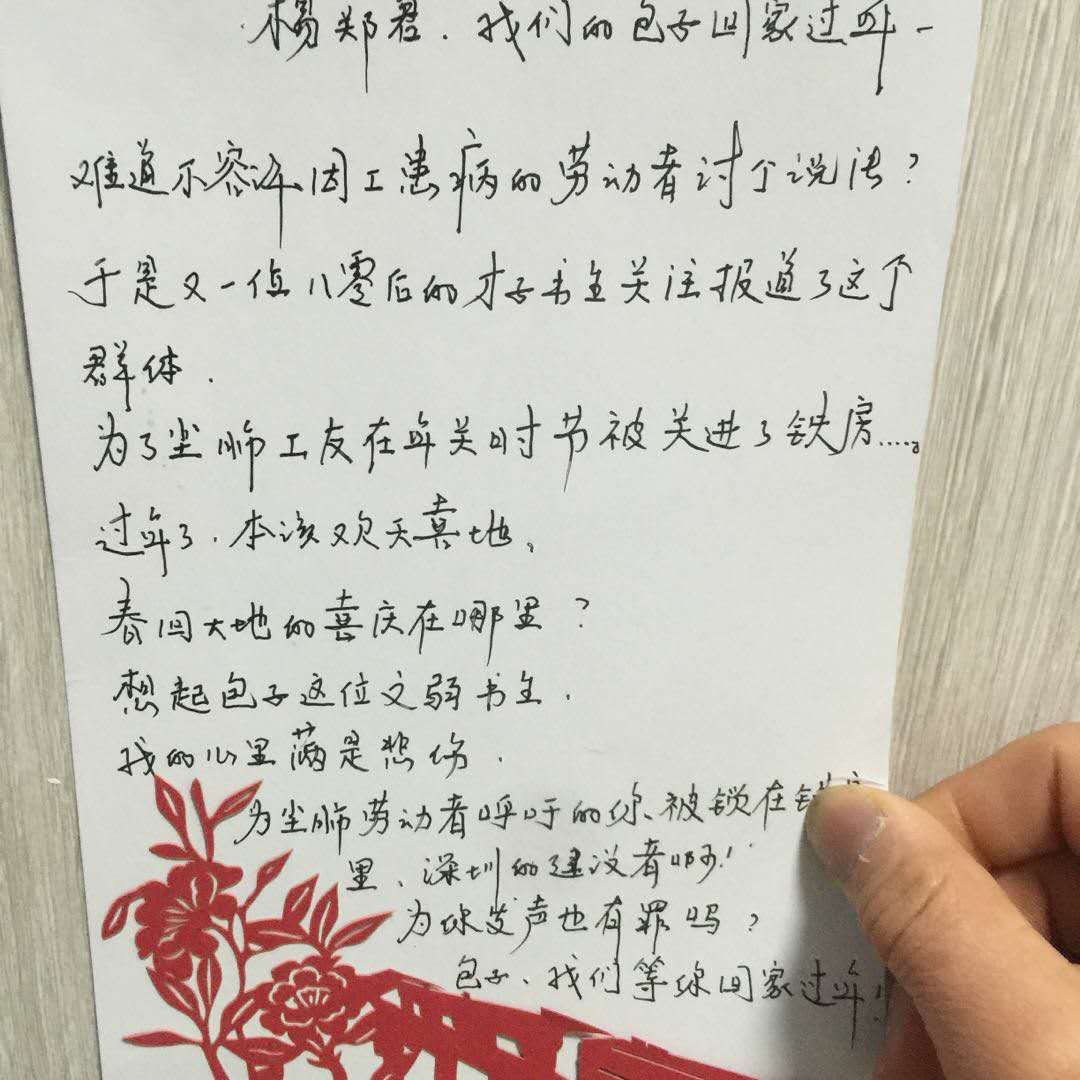 杨郑君.我们的包子回家过年-
难道不容许因工患病的劳动者讨个说法?
于是又一位八零后的才子书生关注报道了这个
群体.
为了尘肺工友在年关时节被关进了铁房......。
过年了.本该欢天喜地,
春回大地的喜庆在哪里?
想起包子这位文弱书生.
我的心里满是悲伤.
为尘肺劳动者呼吁的你被锁在铁房
里、深圳的建设者啊!
为你发声也有罪吗?
包子、我们等你回家过年!